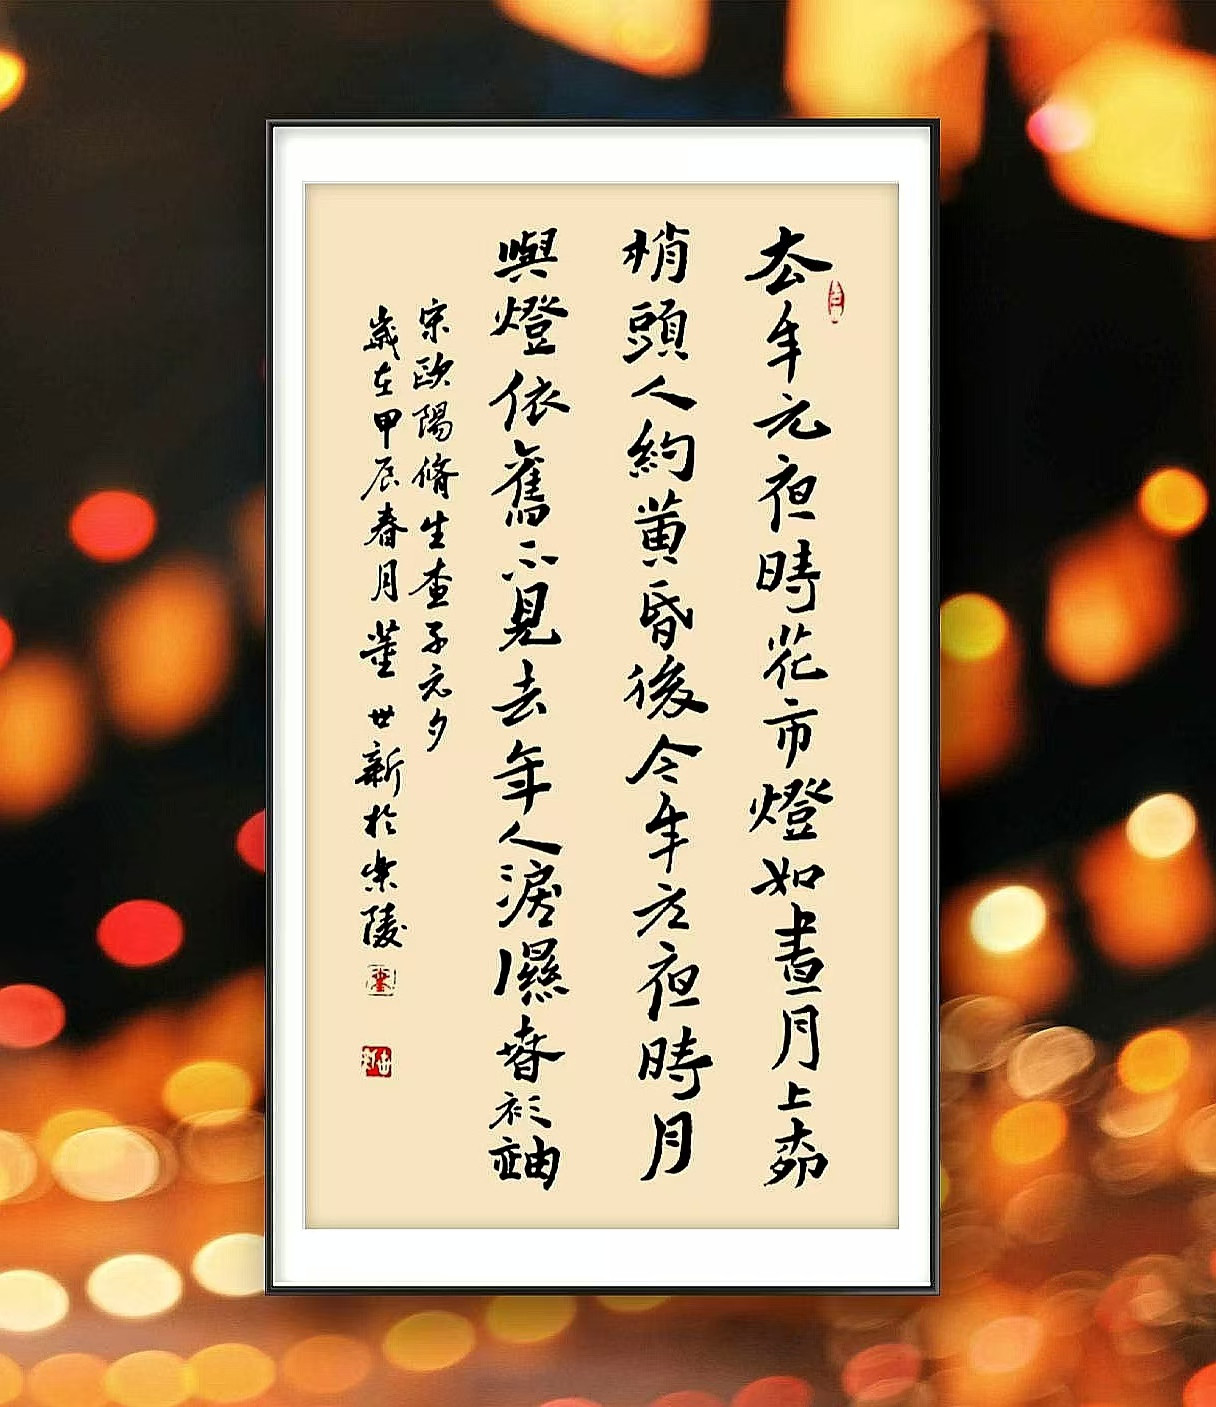 去年元夜時花市燈如晝月上柳
梢頭人約黄昏後今年元夜時月
與燈依舊不見去年人淚濕春衫袖
宋歐陽脩生查子元夕
歲在甲辰春月董世新於樂陵